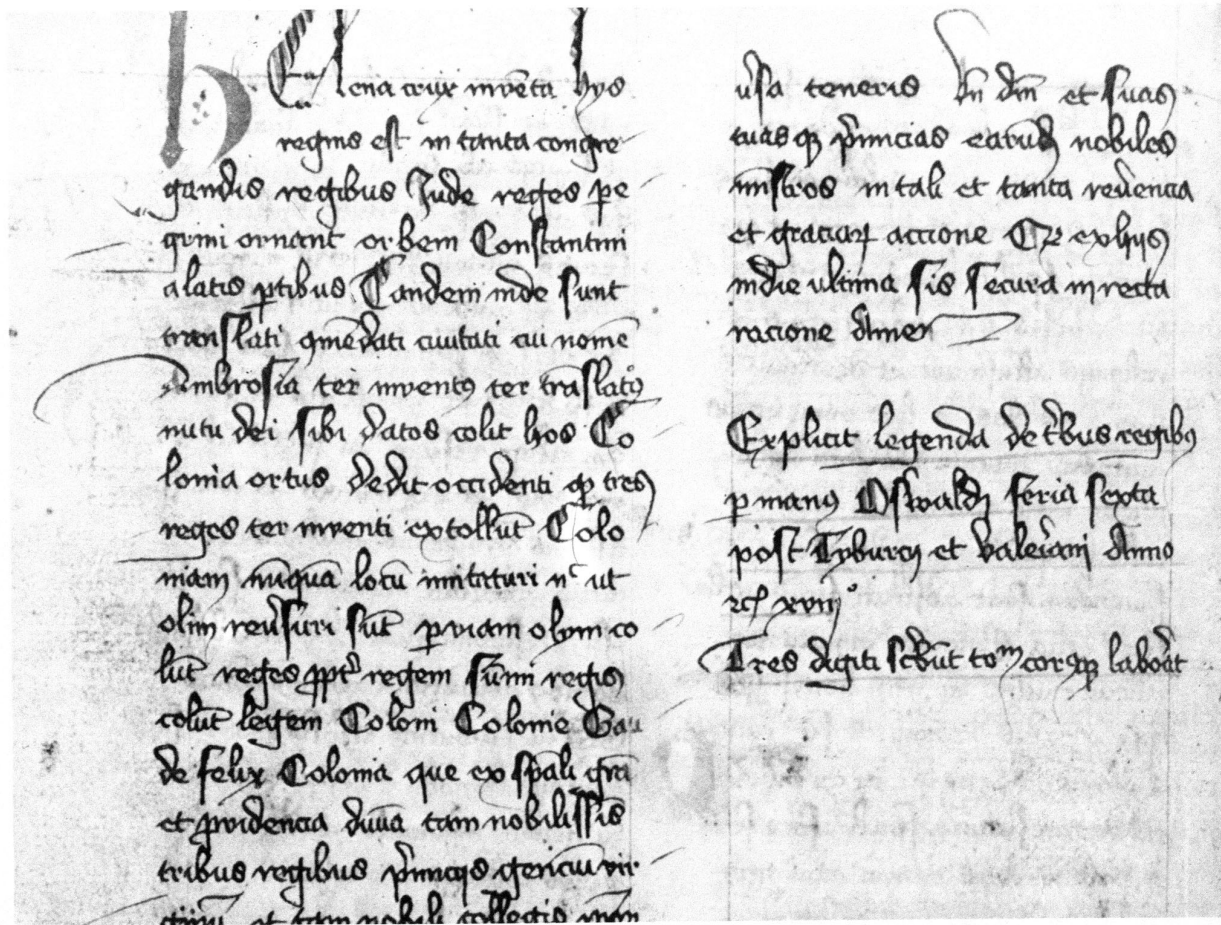 hElena crux inventa hijs
regnis est in tanta congre
gandis regibus Jude reges pe
grini ornant orbem Constantini
a latis ptibus Tandem inde sunt
translati gmēdati ciuitati cui nomē
Ambrosia ter inventꝯ ter trāslatꝯ
nutu dei sibi datos colit hos Co
lonia ortus dedit occidenti qꝫ tres
reges ter inventi extollūt Colo
niam nūquā locū mutaturi nͨ ut
olim reuˢsuri sūt p viam olym co
lūt reges ꝓptˢ regem sūmi regis
colūt legem Coloni Colonie Gau
de felix Colonia que ex spāli grā
et ꝓvidencia diuīa tam nobilissīs
tribus regibus pˢmicijs genciū vir
ginū et tam nobili collegio
uˢsa teneris dn̄ dm̄ et suas
tuasqꝫ pˢuincias earūdꝫ nobiles
mīstros in tali et tanta reuˢencia
et graciaꝝ accione Et ex hijs
in die ultima sis secura in recta
racione Amen
Explicit legenda de tˢbus regibꝯ
p manꝯ Oswaldi feria sexta
post Tyburcij et Valeriani Anno
rcͦ xviijͦ
Tres digiti scˢbūt totūm corpꝯqꝫ laborat